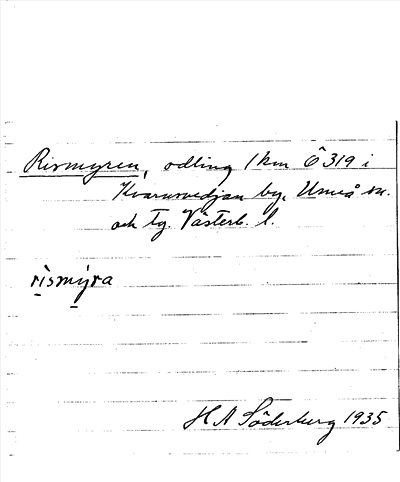 Rismyren, odling 1 km Ö 319 i
Kvarnsvedjan by, Umeå sn.
och tg. Västerb. l.
rismỳra
H A Söderberg 1935